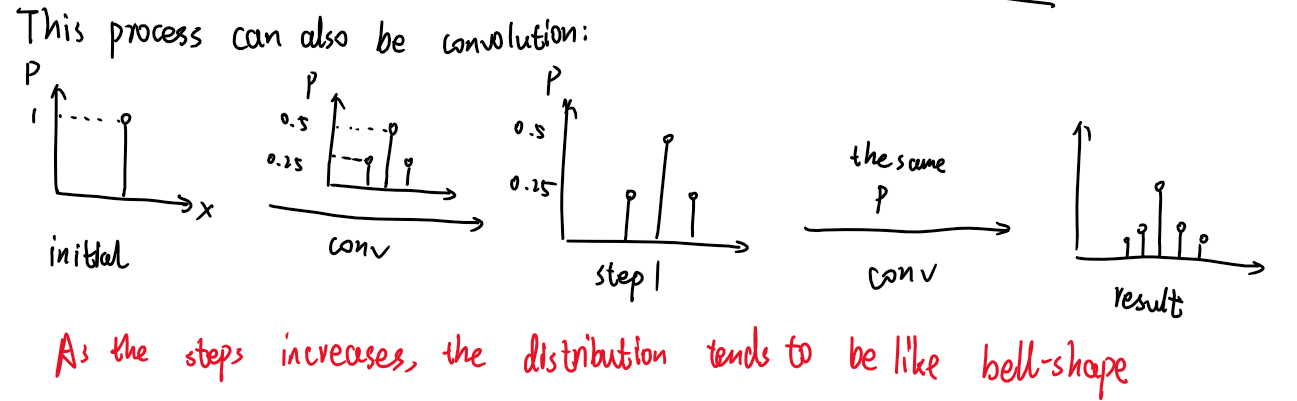 This process can also be convolution:
P
1
x
initial
P
0.5
0.25
conv
P
0.5
0.25
step 1
the same
P
conv
result
As the steps increases, the distribution tends to be like bell-shape